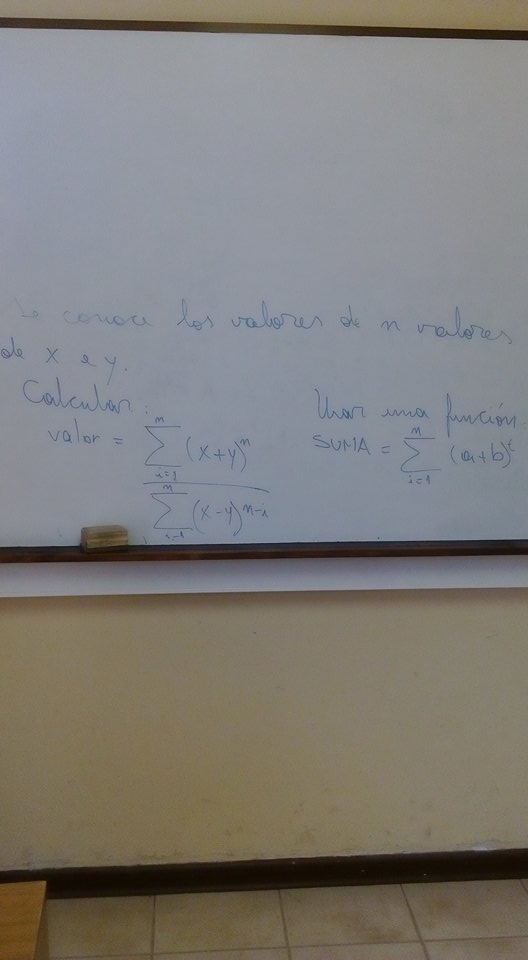 Se conoce los valores de n valores
de x e y.
Calcular:
valor = \frac{\sum_{i=1}^{n} (x+y)^n}{\sum_{i=1}^{n} (x-y)^{n-i}}
Usar una función:
SUMA = \sum_{i=1}^{n} (a+b)^t